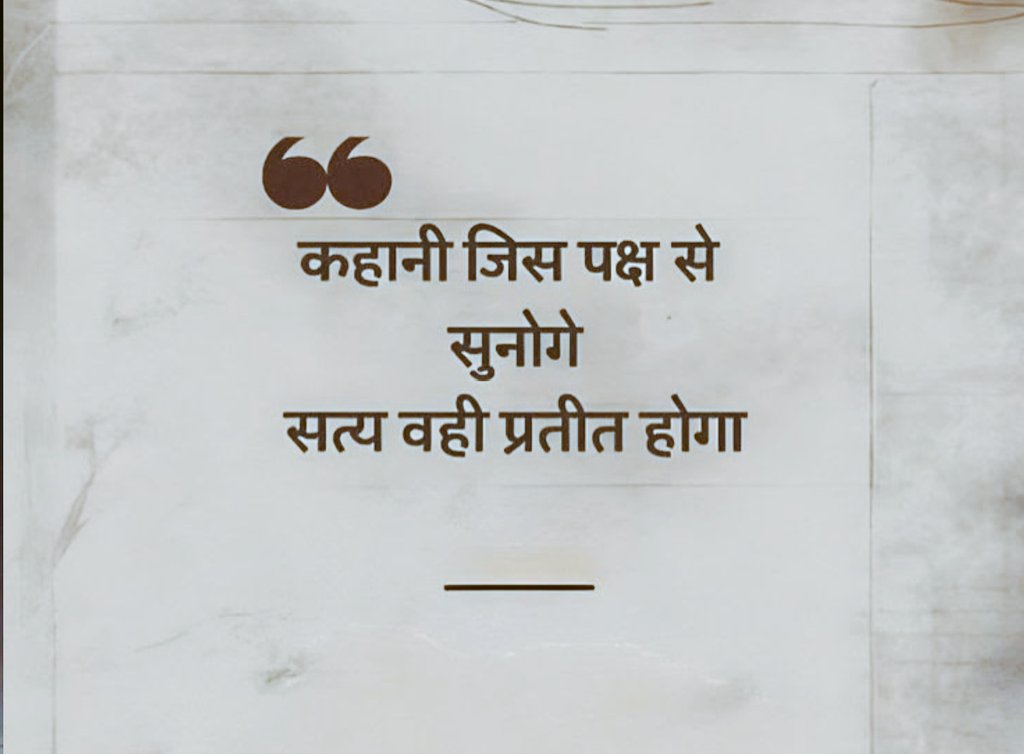 ❝
कहानी जिस पक्ष से
सुनोगे
सत्य वही प्रतीत होगा